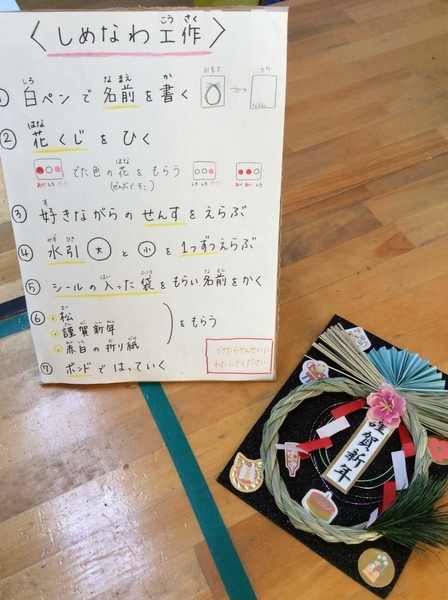 〈しめなわ工作〉
こう さく
① 白ペンで名前を書く
しろ な まえ か
おもて うら
② 花くじをひく
はな
でた色の花をもらう
はな
(ぜんぶで3こ)
あか しろ
③ 好きながらのせんすをえらぶ
す
④ 水引 大 と 小 を1つずつえらぶ
みず ひき
⑤ シールの入った袋をもらい名前をかく
はい ふくろ な まえ
⑥ 松
まつ
謹賀新年
きん が しん ねん
赤白の折り紙
お がみ
をもらう
⑦ ボンドではっていく
できたらせんせいに
わたしてください
謹賀新年